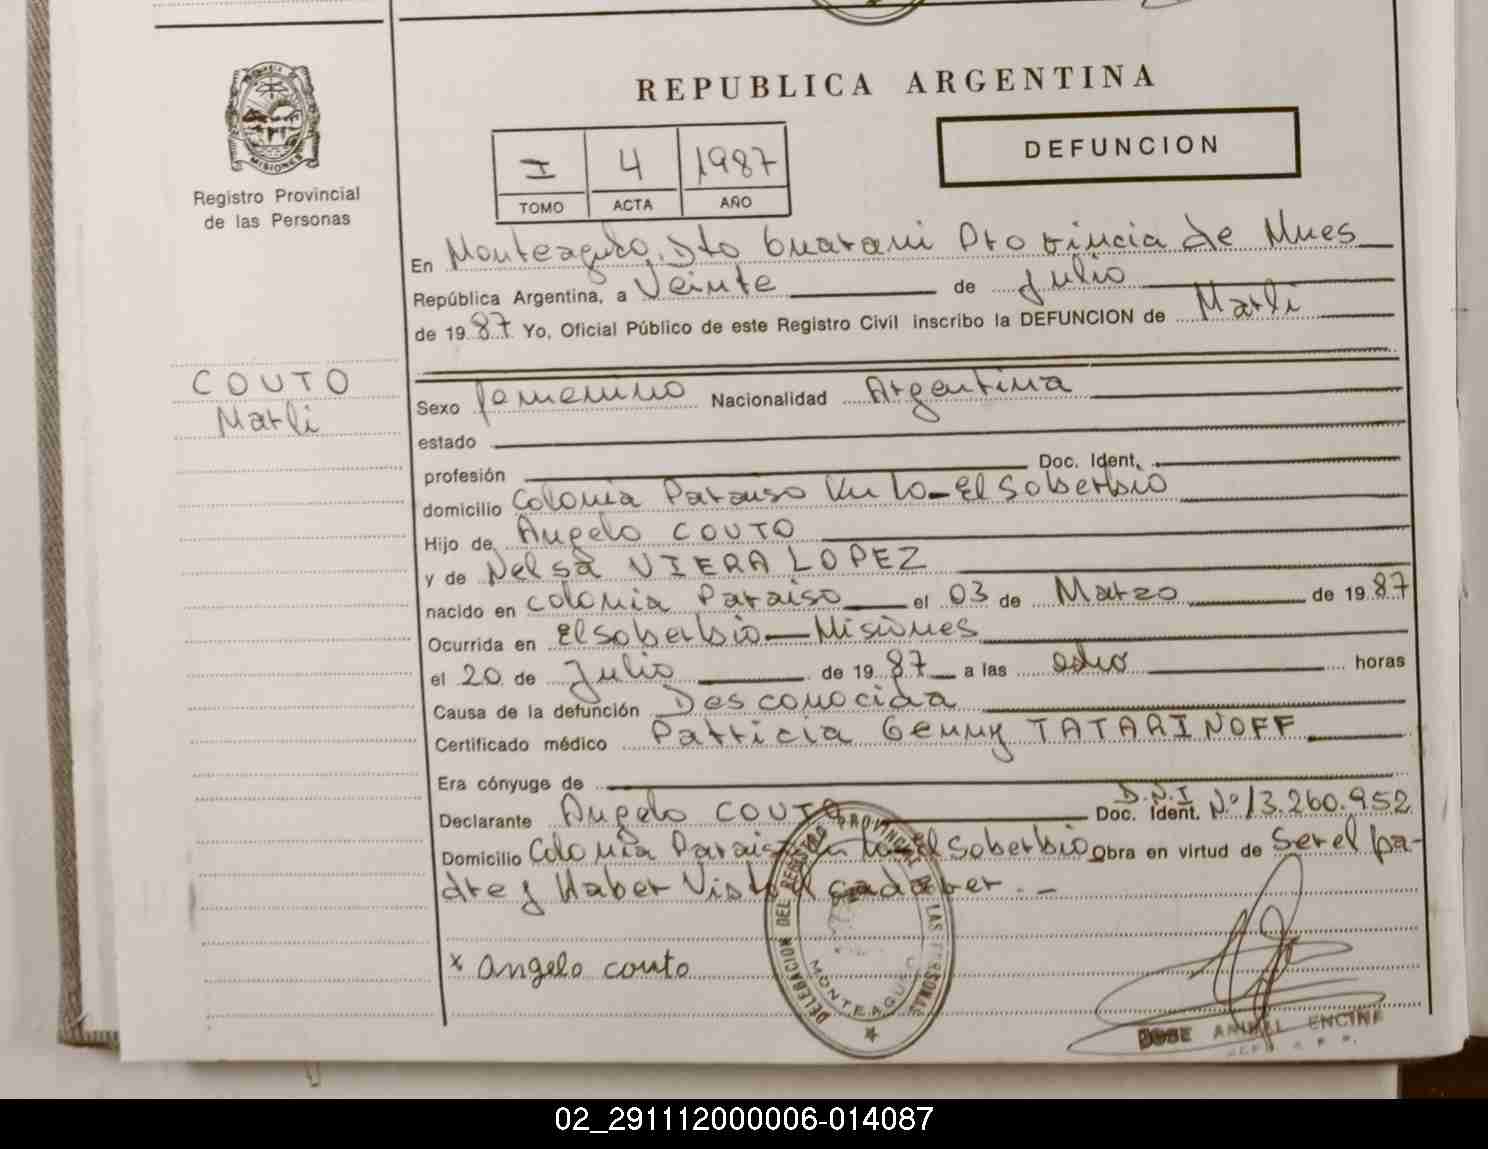 REPUBLICA ARGENTINA
DEFUNCION
MISIONES
Registro Provincial
de las Personas
I 4 1987
TOMO ACTA AÑO
En Monteagudo, Dto Guarani Provincia de Mnes
República Argentina, a Veinte de Julio
de 1987. Yo, Oficial Público de este Registro Civil inscribo la DEFUNCION de Marli
COUTO
Marli
Sexo femenino Nacionalidad Argentina
estado
profesión Doc. Ident.
domicilio Colonia Paraiso Km 10-El Soberbio
Hijo de Angelo COUTO
y de Nelsa VIERA LOPEZ
nacido en Colonia Paraiso el 03 de Marzo de 1987
Ocurrida en El Soberbio-Misiones
el 20 de Julio de 1987 a las ocho horas
Causa de la defunción Desconocida
Certificado médico Patricia Genny TATARINOFF
Era cónyuge de
Declarante Angelo COUTO Doc. Ident. D.N.I Nº 13.260.952
Domicilio Colonia Paraiso Km 10-El Soberbio Obra en virtud de Ser el pa-
dre y Haber Visto el cadaver.-
x angelo couto
DELEGACION DEL REGISTRO PROVINCIAL DE LAS PERSONAS
MONTEAGUDO
JOSE ENCINA
02_291112000006-014087